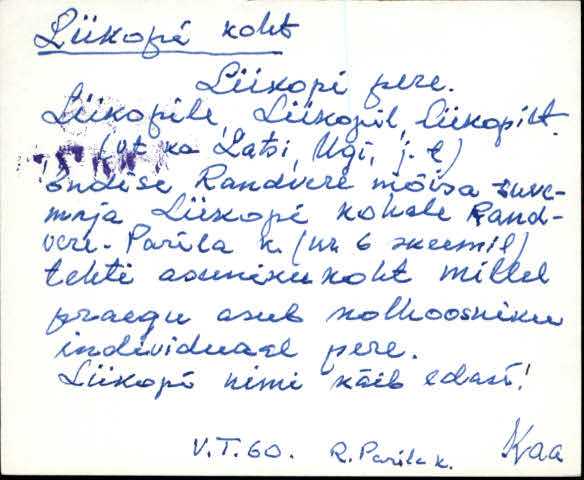 Liikopi koht
Liikopi pere.
Liikopile, Liikopil, liikopilt.
(vt ka Latsi, Ugi, j.t)
Endise Randvere mõisa suve-
maja Liikopi kohale Rand-
vere-Parila k. (nr 6 skeemil)
tehti asunikukoht millel
praegu asub kolhoosniku
individuaal pere.
Liikopi nimi käib edasi!
V.T.60. R. Parila k. Kaa